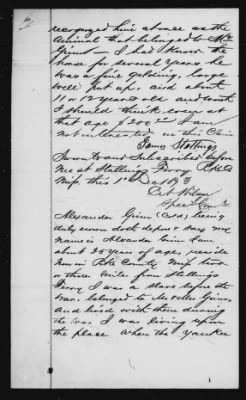 recognized him at once as the
Animal that belonged to Mr
Ginn - I had known the
horse for several years he
was a fine gelding, large
well put up, and about
11 or 12 years old and worth
I should think at
that age $200 I am
not interested in this Claim
James Stallings
Sworn to and Subscribed before
me at Stallings Ferry Pike Co
Miss this 1st 
Special Com
Alexander Ginn (Cold) being
duly sworn doth depose & say my
name is Alexander Ginn I am
about 35 years of age, reside
now in Pike County Miss two
or three miles from Stallings
Ferry I was a slave before the
War, belonged to Ginn,
and lived with them during
the War I was living upon
the place when the Yankee